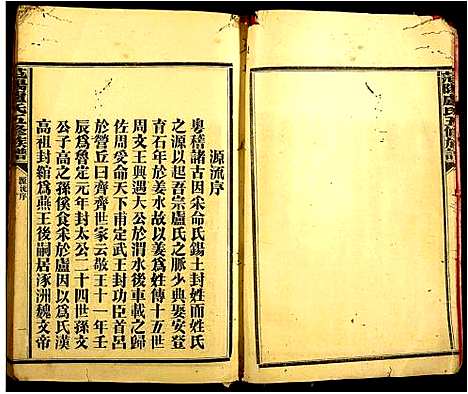 范陽盧氏五修族譜
源流序
粵稽諸古因采命氏錫土封姓而姓氏
之源以起吾宗盧氏之脈少典娶安登
育石年於姜水故以姜爲姓傳十五世
周文王興遇大公於渭水後車載之歸
佐周受命天下甫定武王封功臣首呂
於營丘曰齊齊世家云敬王十一年壬
辰爲魯定元年封太公二十四世孫文
公子高之孫傒食采於盧因以爲氏漢
高祖封綰爲燕王後嗣居涿洲魏文帝
范陽盧氏五修族譜
源流序